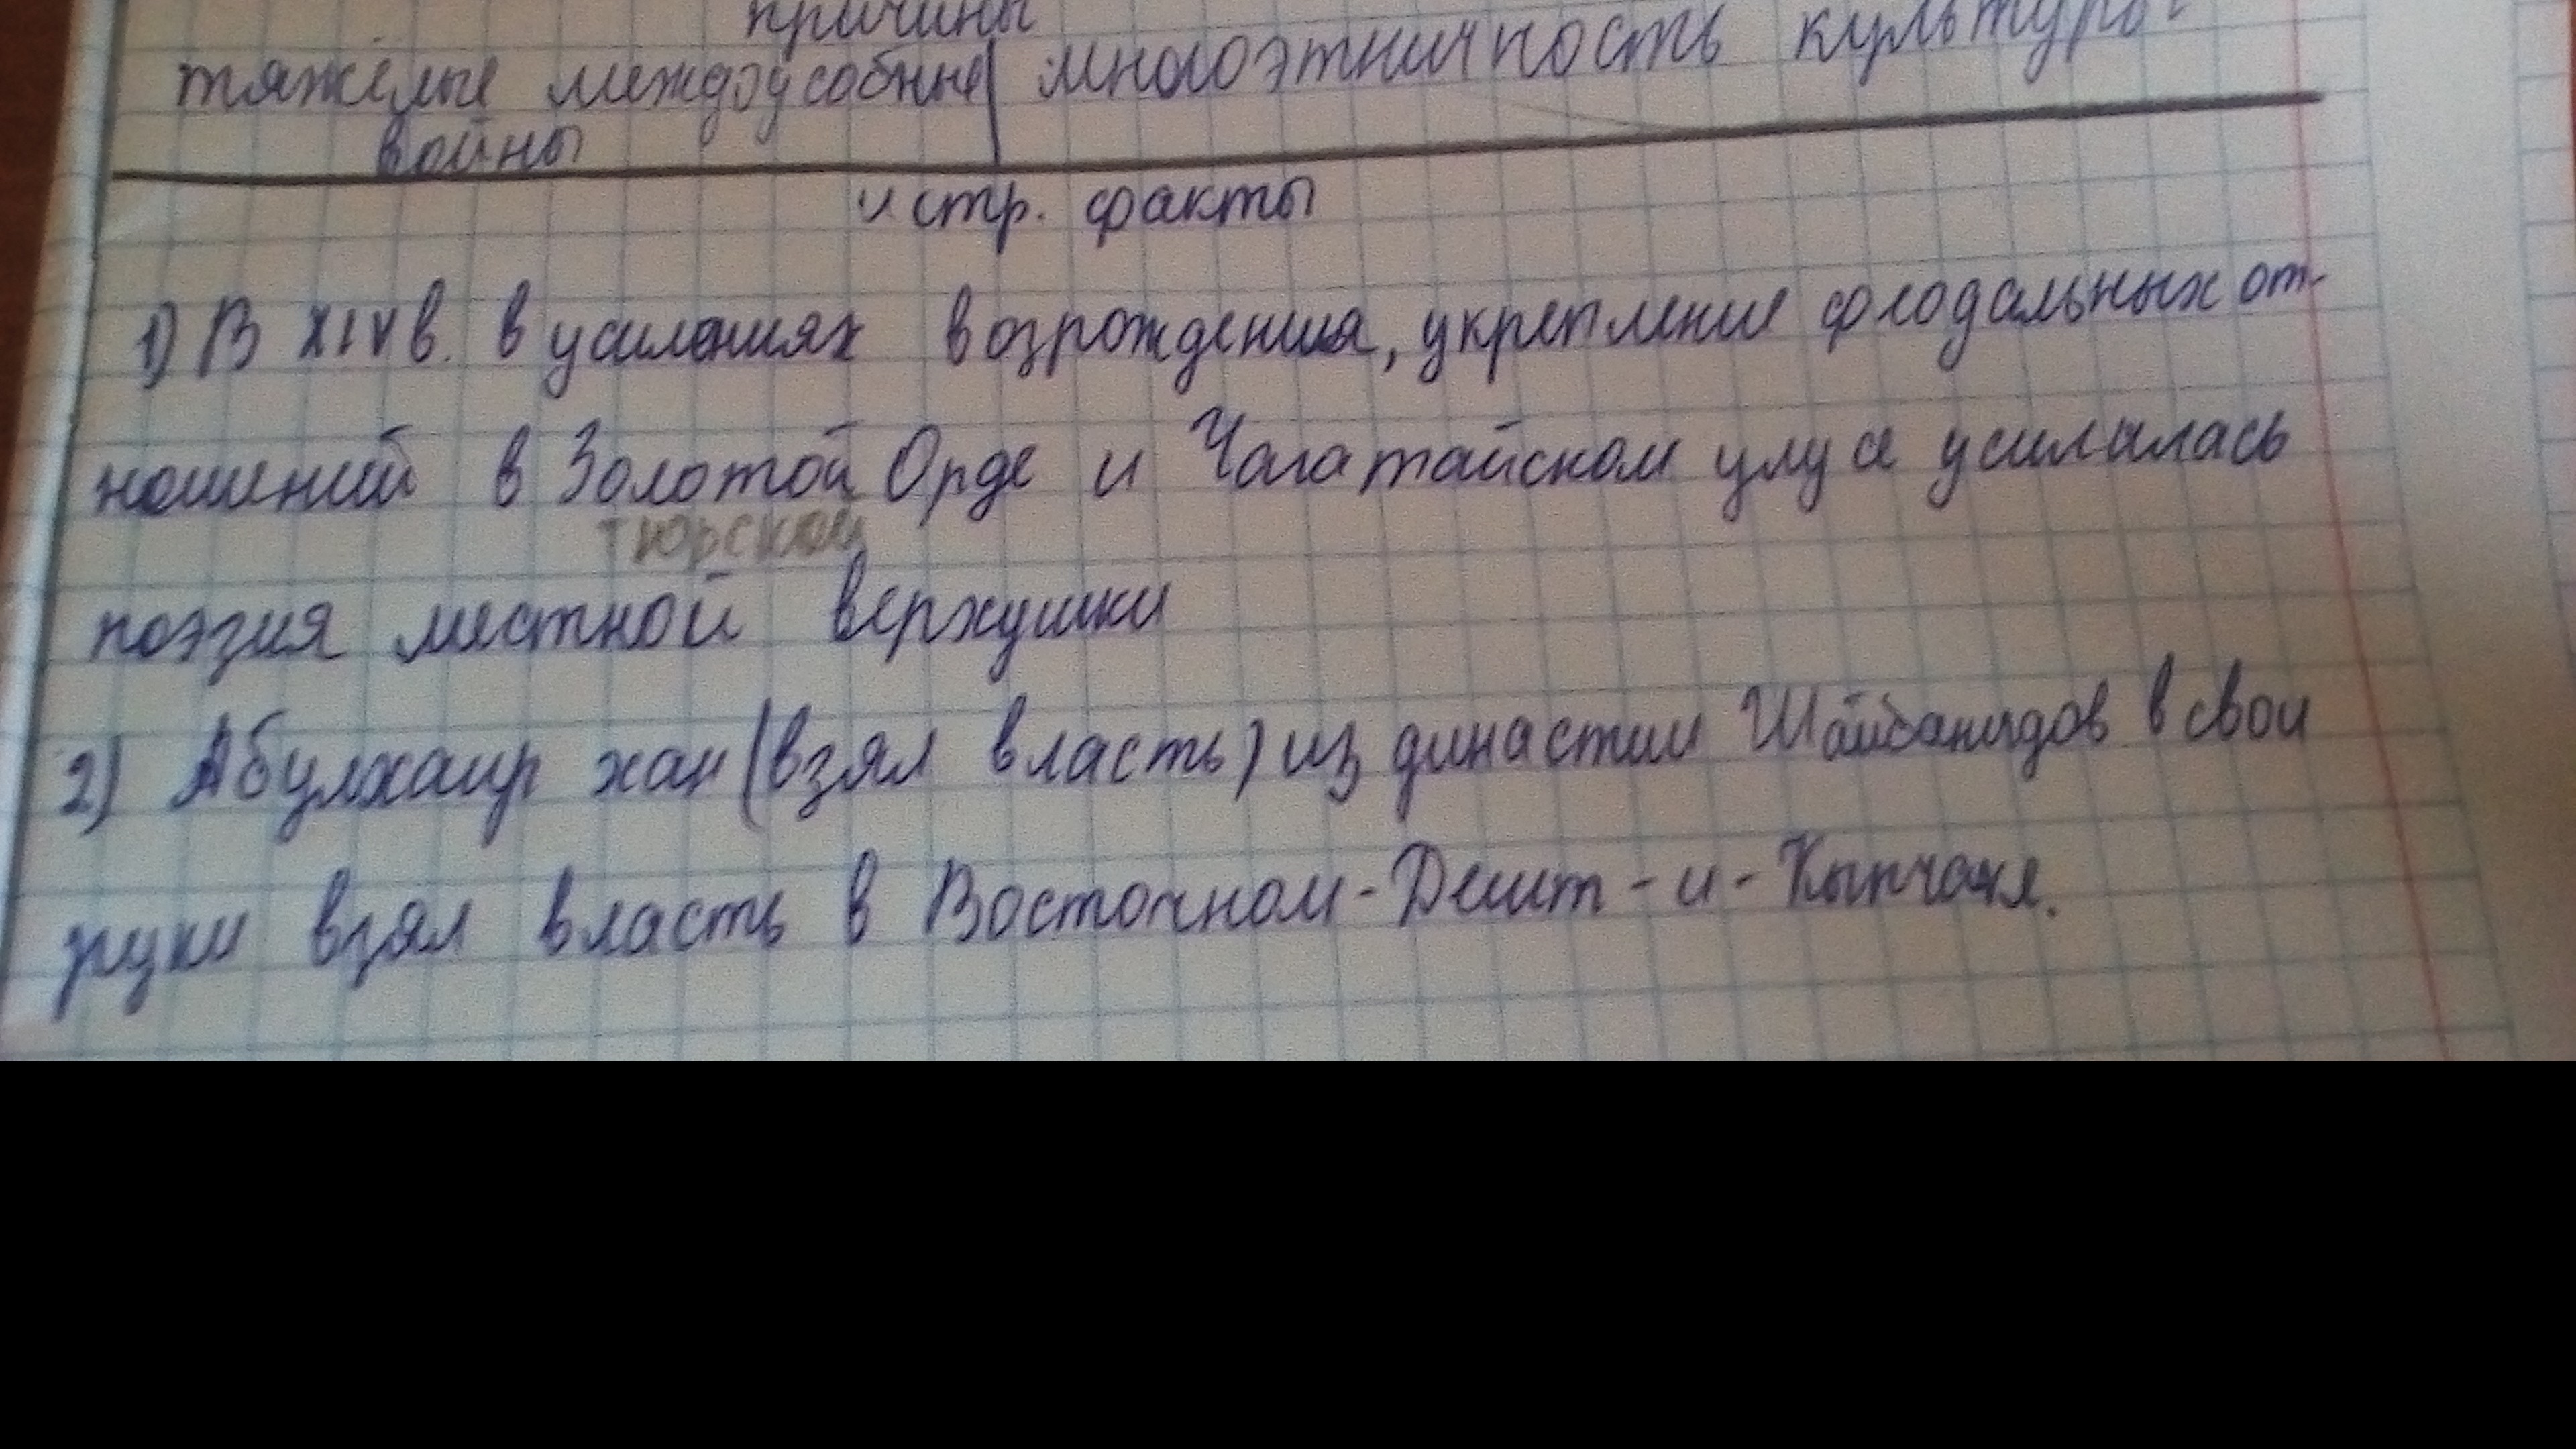 причины
тяжёлые междоусобные многоэтничность культуры
войны
истр. факты
1) В XIV в. в усилениях возрождения, укрепление феодальных от-
ношений в Золотой Орде и Чагатайском улусе усилилась
тюрской
поэзия местной верхушки
2) Абулхаир хан (взял власть) из династии Шайбанидов в свои
руки взял власть в Восточном-Дешт-и-Кыпчаке.